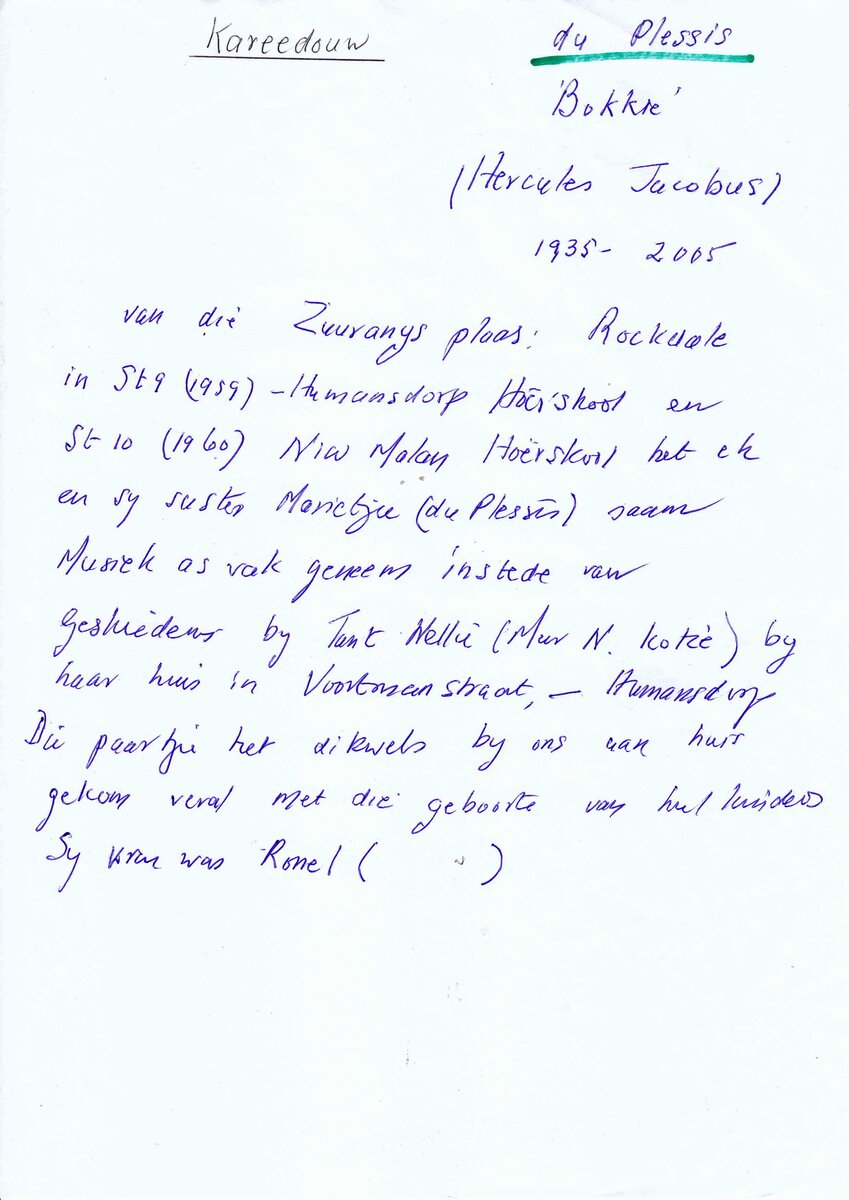 Kareedouw
du Plessis
'Bokkie'
(Hercules Jacobus)
1935 - 2005
van die Zuuranys plaas: Rockdale
in St 9 (1959) - Humansdorp Hoërskool en
St 10 (1960) Nico Malan Hoërskool het ek
en sy suster Marietjie (du Plessis) saam
Musiek as vak geneem instede van
Geskiedenis by Tant Nellie (Mev N. Kotzé) by
haar huis in Voortmanstraat, - Humansdorp
Die paartjie het dikwels by ons aan huis
gekom veral met die geboorte van hul kinders
Sy vrou was Ronel ( )